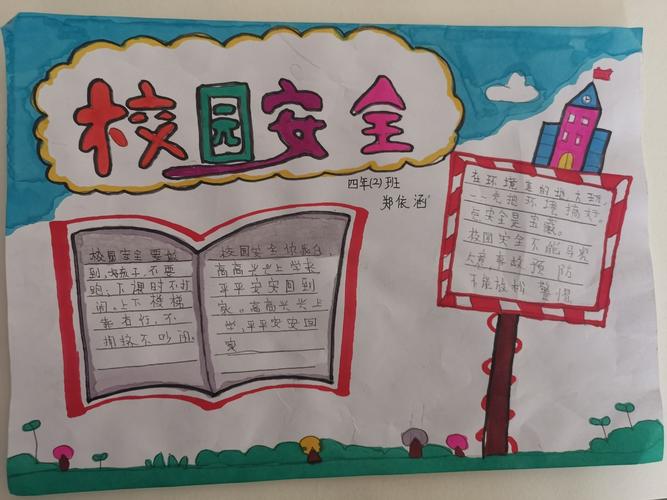 校园安全
四年(2)班
郑依涵
校园安全要做
到,好孩子,不要
跑,下课时不打
闹。上下楼梯
靠右行,不
拥挤不吵闹。
校园安全
高高兴兴上学来
平平安安回到
家。高高兴兴上
学,平平安安回
家
在环境
把环境搞好。
安全是宝藏。
校园安全不能马虎
事故预防
不能放松警惕